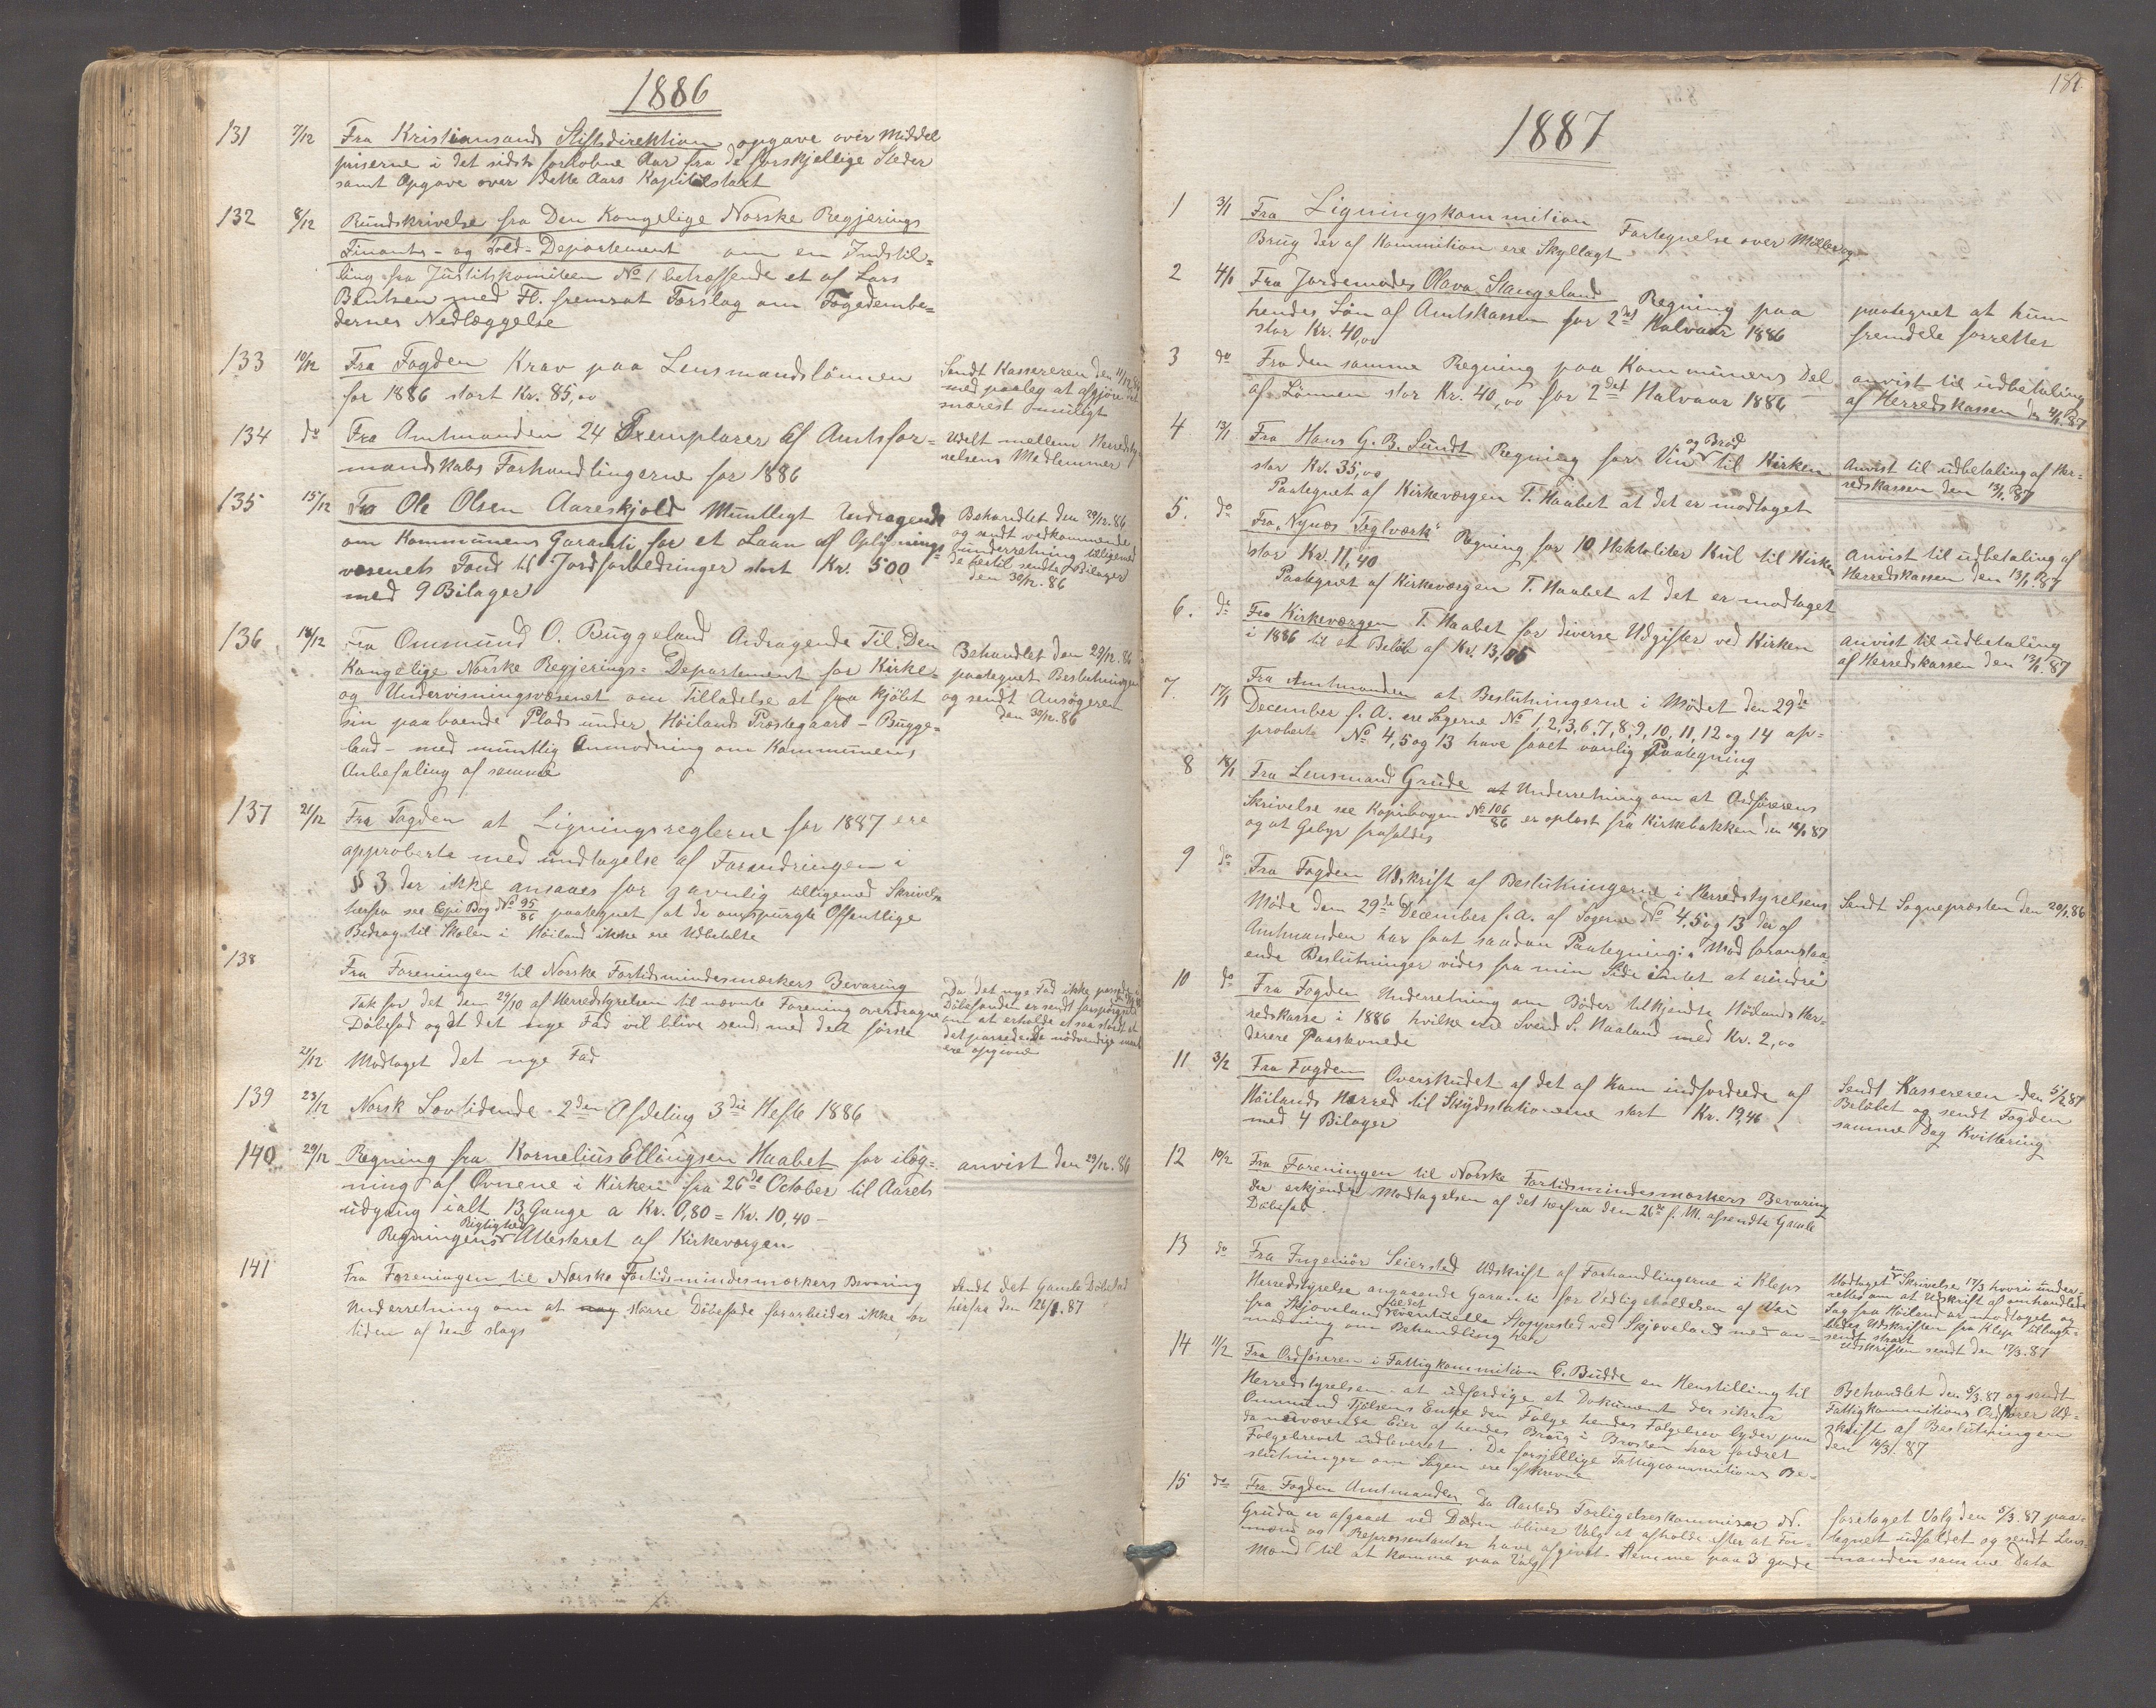 1886
131 7/12 Fra Kristiansands Stiftsdirektion opgave over Middel
priserne i det sidste forløbne Aar fra de forskjellige Steder
samt Opgave over dette Aars Kapitelstakt
132 8/12 Rundskrivelse fra Den Kongelige Norske Regjerings
Finants- og Told-Departement om en Indstil=
ling fra Justitskomiteen No 1 betræffende et af Lars
Bentsen med Fl. fremsat Forslag om Fogedembe=
dernes Nedlæggelse
133 10/12 Fra Fogden Krav paa Lensmandslønnen
for 1886 stort Kr. 85,00
Sendt Kassereren den 11/12 86
med paalæg at afgjøre det
snarest muligt
134 do Fra Amtmanden 24 Exemplarer af Amtsfor=
mandskabs Forhandlingerne for 1886
Udelt mellem Herredsty
relsens Medlemmer
135 15/12 Fra Ole Olsen Aareskjold Mundtligt Andragende
om Kommunens Garanti for et Laan af Oplysnings=
væsenets Fond til Jordforbedringer stort Kr. 500
med 9 Bilager
Behandlet den 29/12.86
og sendt vedkommende
underretning tilligemed
de hertil sendte Bilager
den 30/12.86
136 18/12 Fra Ommund O. Buggeland Andragende Til Den
Kongelige Norske Regjerings= Departement for Kirke=
og Undervisningsvæsenet om tilladelse at faa kjøbt
sin paaboende Plads under Höilands Præstegaard - Bugge=
land - med mundtlig Anmodning om Kommunens
Anbefaling af samme
Behandlet den 29/12.86
paategnet Beslutningen
og sendt Ansøgeren
den 30/12.86
137 21/12 Fra Fogden at Ligningsreglerne for 1887 ere
approberte med undtagelse af Forandringen i
§ 3 der ikke ansaaes for gavnlig tilligemed Skrivelse
herfra see Copi Bog No 95/86 paategnet at de omspurgte Offentlige
Bidrag til Skolen i Höiland ikke ere Udbetalte
138 Fra Foreningen til Norske Fortidsmindesmærkers Bevaring
Tak for det den 29/10 af Herredstyrelsen til nævnte Forening overdragne
Döbefad og at det nye Fad vil blive sendt med det første
21/12 Modtaget det nye Fad
Da det nye Fad ikke passede i
Döbefonden er sendt forespørgsel
om at erholde et saa stort at
det passede. De nødvendige maal
ere opgivne
139 23/12 Norsk Lovtidende 2den Afdeling 3die Hefte 1886
140 29/12 Regning fra Kornelius Ellingsen Haabet for ilæg=
ning af Ovnene i Kirken fra 26de October til Aarets
udgang ialt 13 Gange a Kr. 0,80 = Kr. 10,40 -
Regningens Rigtighed Attesteret af Kirkeværgen
anvist den 29/12.86
141 Fra Foreningen til Norske Fortidsmindesmærkers Bevaring
Underretning om at større Döbefade forarbeides ikke for
tiden af den slags
Sendt det Gamle Döbefad
herfra den 26/1.87
181.
1887
1 3/1 Fra Ligningskommition Fortegnelse over Möller og
Brug der af Kommition ere Skyllagt
2 4/1 Fra Jordemoder Olava Stangeland Regning paa
hendes Løn af Amtskassen for 2det Halvaar 1886
stor Kr. 40,00
paategnet at hun
fremdeles forretter
3 do Fra den samme Regning paa Kommunens Del
af Lønnen stor Kr. 40,00 for 2det Halvaar 1886
anvist til udbetaling
af Herredskassen den 4/1.87
4 13/1 Fra Hans G. B. Sundt Regning for Vin og Brød til Kirken
stor Kr. 35,00
Paategnet af Kirkeværgen T. Haabet at det er modtaget
Anvist til udbetaling af Her-
redskassen den 13/1.87
5. do Fra "Nynæs Teglværk" Regning for 10 Hektoliter Kul til Kirken
stor Kr. 11,40
Paategnet af Kirkeværgen T. Haabet at det er modtaget
Anvist til udbetaling af
Herredskassen den 13/1.87
6. do Fra Kirkeværgen T. Haabet for diverse Udgifter ved Kirken
i 1886 til et Beløb af Kr. 13,05
anvist til udbetaling
af Herredskassen den 13/1.87
7. 17/1 Fra Amtmanden at Beslutningerne i Mødet den 29de
December f. A. ere Sagerne No 1, 2, 3, 6, 7, 8, 9, 10, 11, 12 og 14 ap=
proberte No 4, 5 og 13 have faaet vanlig Paategning
8 18/1 Fra Lensmand Grude Underretning om at Ordførerens
Skrivelse see Kopibogen No 106/86 er oplæst fra Kirkebakken den 16/1 87
og at Gebyr frafaldes
9 do Fra Fogden Udskrift af Beslutningerne i Herredstyrelsens
Møde den 29de December f. A. af Sagerne No 4, 5 og 13 der af
Amtmanden har faat saadan Paategning: Mod foranstaa=
ende Beslutninger vides fra min Side intet at erindre
Sendt Sognepræsten den 20/1.86
10 do Fra Fogden Underretning om Bøder tilkjendte Höilands Her=
redskasse i 1886 hvilke ere Svend S. Haaland med Kr. 2,00
derere Paaskonede
11 3/2 Fra Fogden Overskudet af det af Ham indfordrede af
Höilands Herred til Skydsstationerne stort Kr. 19,46
med 4 Bilager
Sendt Kassereren den 5/2 87
Beløbet og sendt Fogden
samme Dag Kvittering
12 10/2 Fra Foreningen til Norske Fortidsmindesmærkers Bevaring
der erkjender Modtagelsen af det herfra den 26de f. M. afsendte Gamle
Döbefad.
13 do Fra Ingeniör Seiersted Udskrift af Forhandlingerne i Kleps
Herredstyrelse angaaende Garanti for Vedligeholdelsen af Vei
fra Skjæveland til det eventuelle Stoppested ved Skjæveland med an=
modning om Behandling her
Modtaget en Skrivelse 17/3 hvori under=
rettes om at Udskrift af omhandlede
Sag fra Höiland er modtaget og
bedes Udskriften fra Klep tilbage=
sendt strax
Udskriften sendt den 17/3.87
14 11/2 Fra Ordføreren i Fattigkommition C. Budde en Henstilling til
Herredstyrelsen at udfærdige et Dokument der sikrer
Ommund Tjölsens Enke den Følge hendes Følgebrev lyder paa
da nuværende Eier af hendes Brug i Brosten har fordret
Følgebrevet udleveret. De forsjellige Fattigcommitions Be=
slutninger om Sagen ere afskrevne
Behandlet den 5/3.87 og sendt
Fattigkommitions Ordfører Ud=
skrift af Beslutningen
den 16/3.87
15 do Fra Fogden Amtmanden Da Aasteds Forligelseskommisær N.
Gruda er afgaaet ved Døden bliver Valg at afholde efter at For=
mænd og Repræsentanter have afgivet Stemme paa 3 gode
Mænd til at komme paa Valg
foretaget Valg den 5/3.87 paa=
tegnet udfaldet og sendt Lens=
manden samme Dato